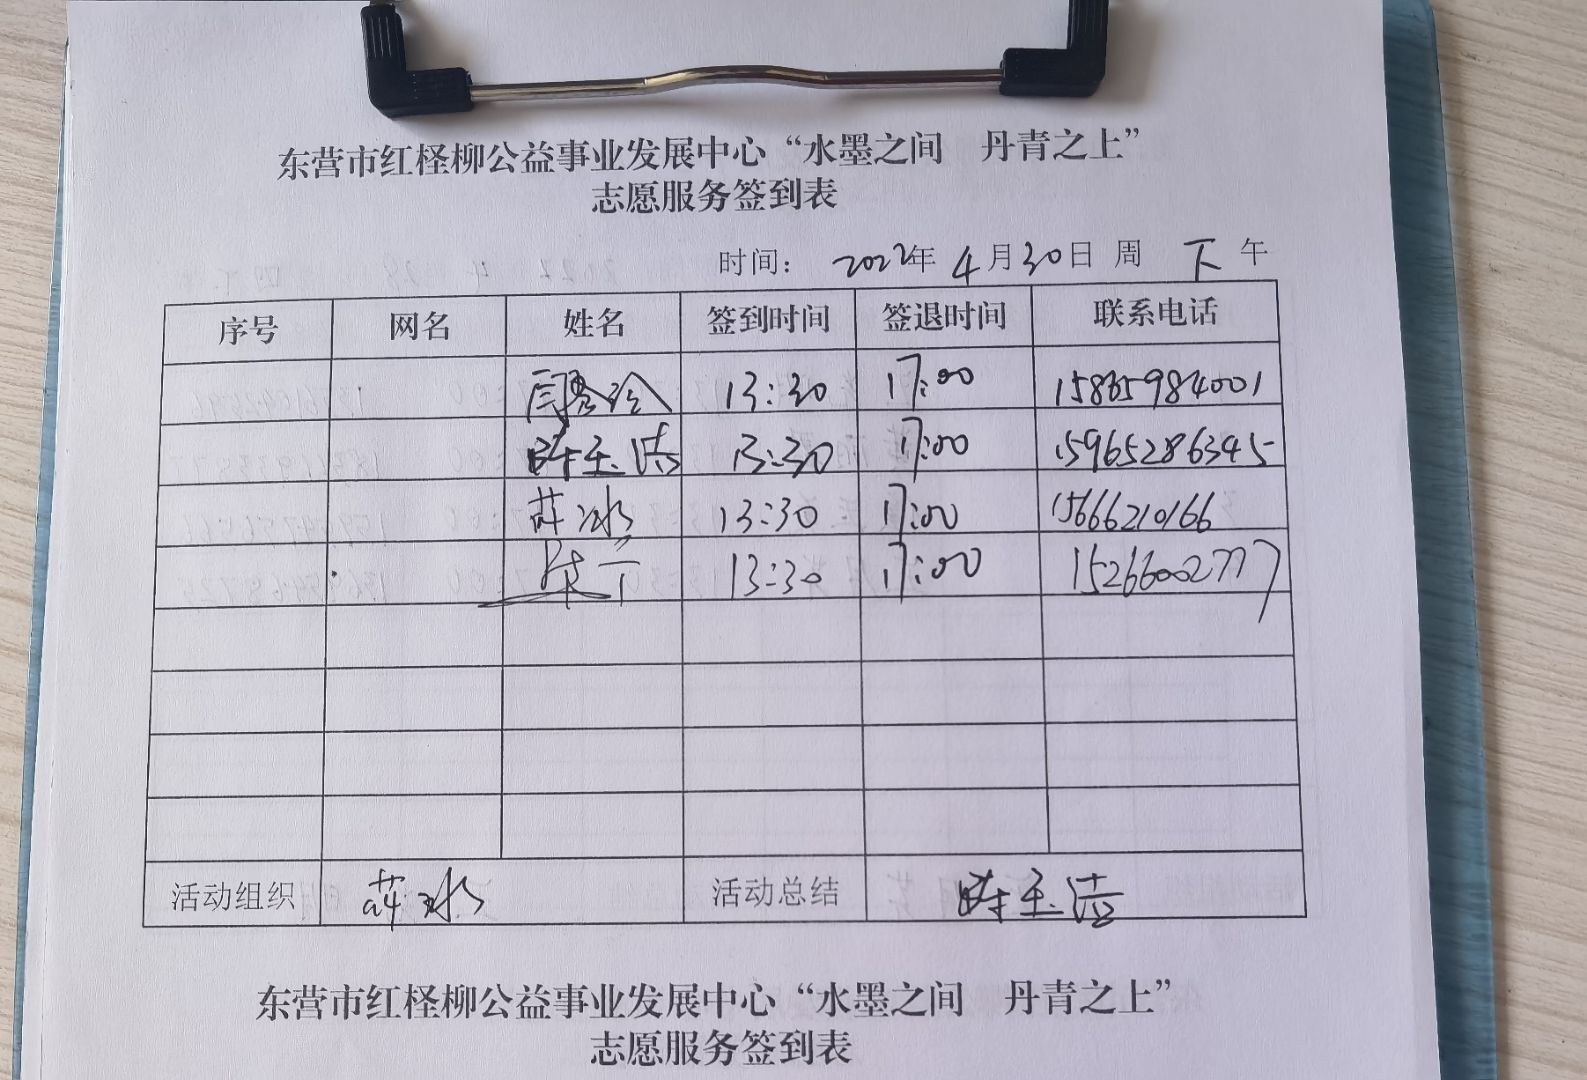 东营市红柽柳公益事业发展中心“水墨之间 丹青之上”
志愿服务签到表
时间： 2022年 4月30日 周 下午
序号 网名 姓名 签到时间 签退时间 联系电话
13:30 17:00 15865984001
时玉洁 13:30 17:00 15965286345
薛冰 13:30 17:00 15666210166
13:30 17:00 15266002777
活动组织 薛冰 活动总结 时玉洁
东营市红柽柳公益事业发展中心“水墨之间 丹青之上”
志愿服务签到表